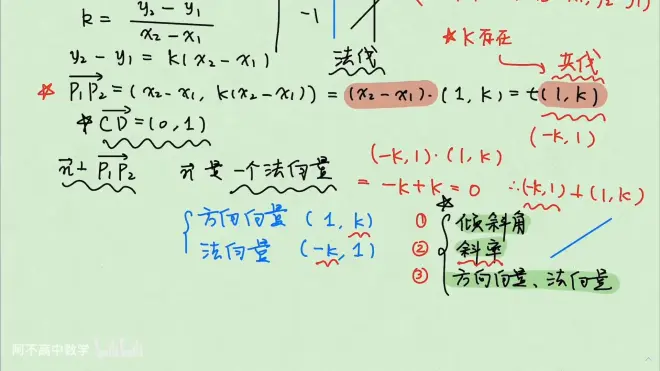 k = \frac{y₂ - y₁}{x₂ - x₁}
-1
☆ k存在
y₂ - y₁ = k(x₂ - x₁)
法伐
共伐
☆ \overrightarrow{P₁P₂} = (x₂-x₁, k(x₂-x₁)) = (x₂-x₁)·(1, k) = t(1, k)
☆ \overrightarrow{CD} = (0, 1)
(-k, 1)
\vec{n} ⊥ \overrightarrow{P₁P₂} \vec{n} 是一个法向量
(-k, 1)·(1, k)
= -k + k = 0 ∴(-k, 1) ⊥ (1, k)
方向向量 (1, k)
法向量 (-k, 1)
☆
① 倾斜角
② 斜率
③ 方向向量、法向量
阿不高中数学 bilibili